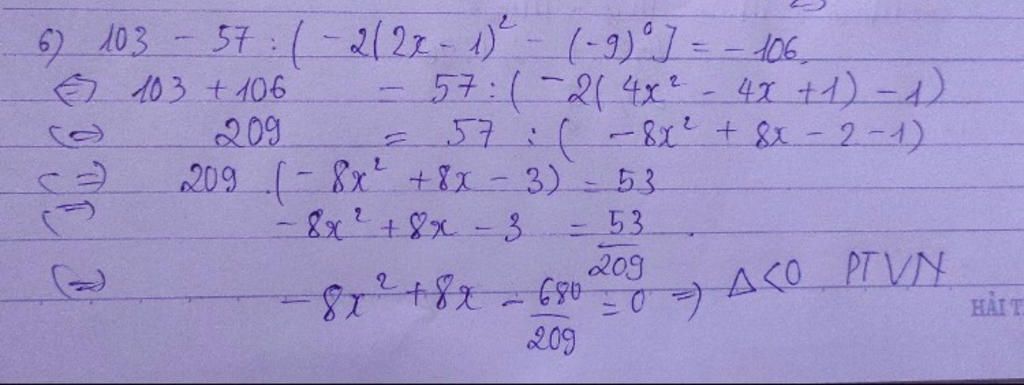 6) 103 - 57 : ( -2(2x - 1)² - (-9)⁰ ] = -106.
⇔ 103 + 106 = 57 : ( -2( 4x² - 4x + 1) - 1)
⇔ 209 = 57 : ( -8x² + 8x - 2 - 1)
⇔ 209 . (- 8x² + 8x - 3) = 53
⇔ -8x² + 8x - 3 = 53/209 .
⇔ -8x² + 8x - 680/209 = 0 ⇒ Δ<0 PTVN
HẢI T